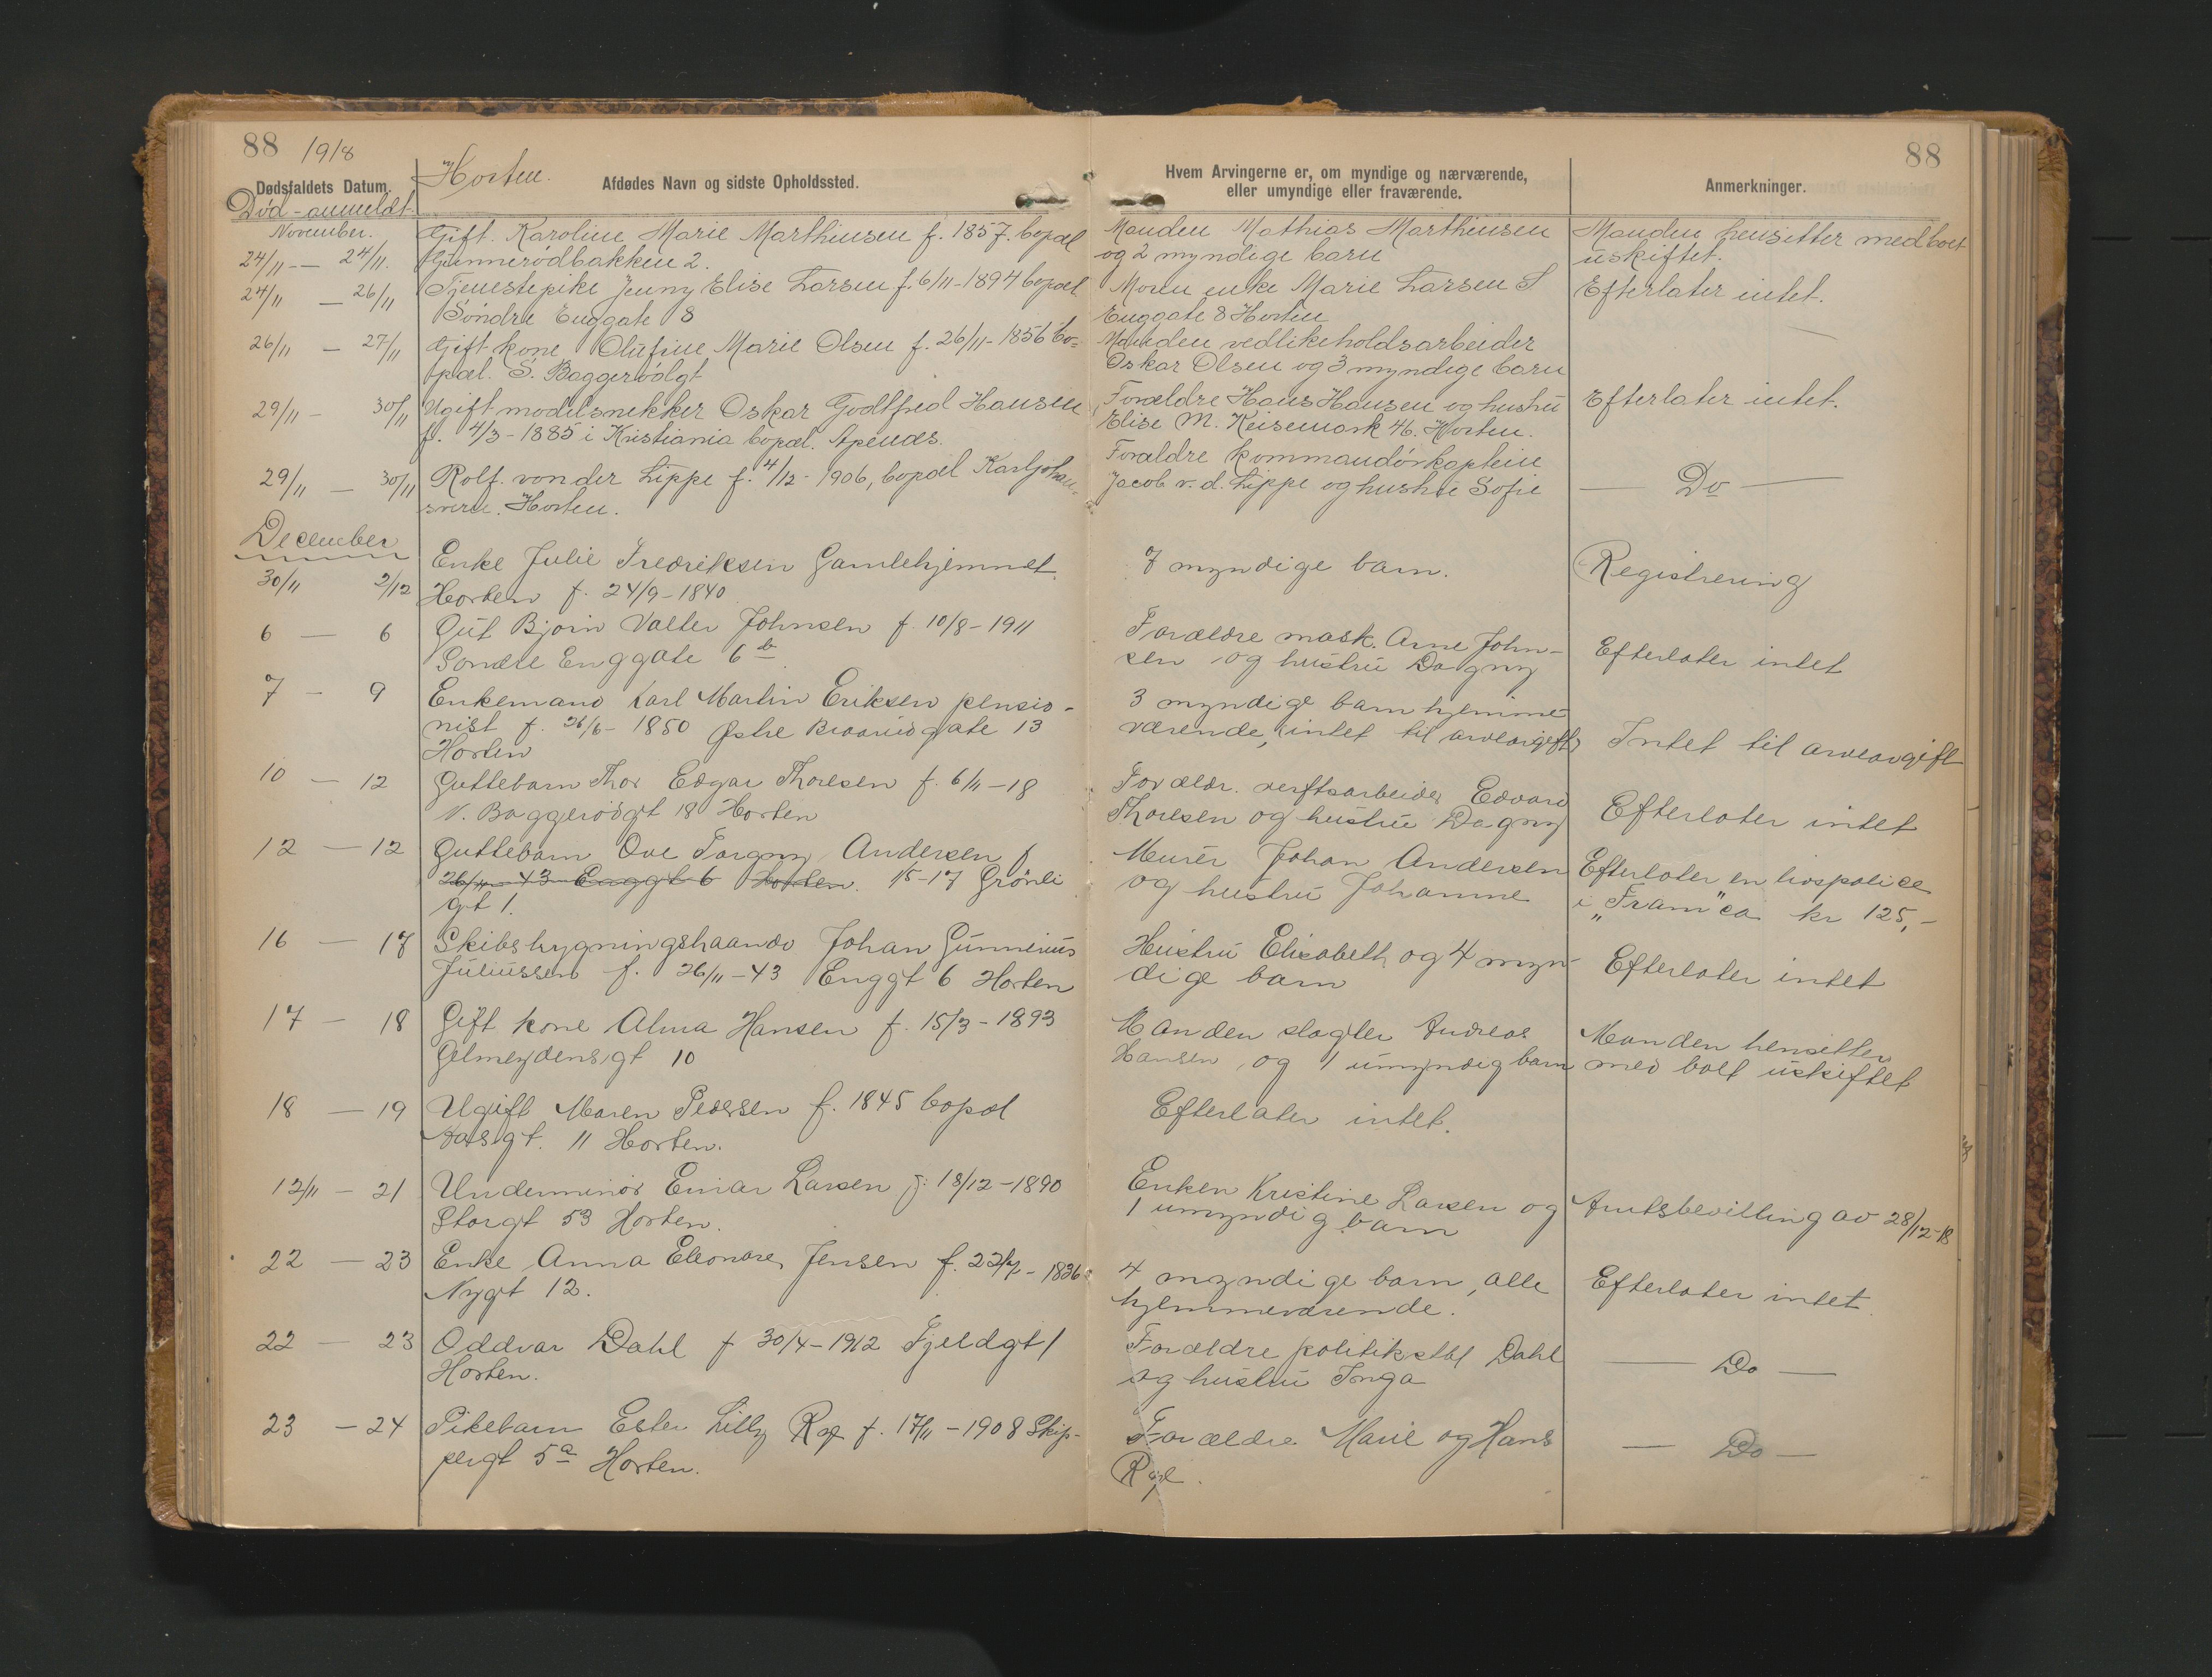 88 1918
88
Horten.
Dødsfaldets Datum.
Afdødes Navn og sidste Opholdssted.
Hvem Arvingerne er, om myndige og nærværende,
eller umyndige eller fraværende.
Anmerkninger.
Død - anmeldt
November.
24/11 — 24/11.
Gift. Karoline Marie Marthinsen f. 1857. bopæl
Gunnerødbakken 2.
Manden Mathias Marthinsen
og 2 myndige barn
Manden hensitter med boet
uskiftet.
24/11 — 26/11
Tjenestepike Jenny Elise Larsen f. 6/11-1894 bopæl
Søndre Enggate 8
Moren enke Marie Larsen S
Enggate 8 Horten
Efterlater intet.
26/11 — 27/11
Gift kone Olufine Marie Olsen f. 26/11-1856 bo=
pæl. S. Baggerødgt
Manden vedlikeholdsarbeider
Oskar Olsen og 3 myndige barn
29/11 — 30/11
Ugift modelsnekker Oskar Godtfred Hansen
f. 4/3-1885 i Kristiania bopæl. Apenæs.
Forældre Hans Hansen og hustru
Elise M. Keisemark 46. Horten.
Efterlater intet.
29/11 — 30/11
Rolf. von der Lippe f. 4/12-1906, bopæl Karljohan-
svern. Horten.
Forældre kommandørkaptein
Jacob v. d. Lippe og hustru Sofie
— Do —
December
30/11 2/12
Enke Julie Fredriksen Gamlehjemmet
Horten f. 24/9-1840
7 myndige barn.
Registrering
6 — 6
Gut Bjørn Valter Johnsen f. 10/8-1911
Søndre Enggate 6 b
Forældre mask. Arne John-
sen og hustru Dagny
Efterlater intet
7 — 9
Enkemand Karl Martin Eriksen pensio-
nist f. 26/6-1850 Østre Braarudgate 13
Horten
3 myndige barn hjemme
værende, intet til arveavgift
Intet til arveavgift
10 — 12
Guttebarn Thor Edgar Thoresen f. 6/11-18
N. Baggerødgt 18 Horten
Forældr. verftsarbeider Edvard
Thoresen og hustru Dagny
Efterlater intet
12 — 12
Guttebarn Ove Torgny Andersen f
26/11-43 Enggt 6 Horten. 1/5-17 Grønli
gt 1.
Murer Johan Andersen
og hustru Johanne
Efterlater en livspolice
i „Fram" ca kr 125,-
16 — 17
Skibsbygningshaandv Johan Gunnerius
Juliussen f. 26/11-43 Enggt 6 Horten
Hustru Elisabeth og 4 myn-
dige barn
Efterlater intet
17 — 18
Gift kone Alma Hansen f. 15/3-1893
Gjelmeydensgt 10
Manden slagter Andreas
Hansen, og 1 umyndig barn
Manden hensitter
med boet uskiftet
18 — 19
Ugift Maren Pedersen f. 1845 bopæl
gt. 11 Horten.
Efterlater intet.
12/11 — 21
Underminør Einar Larsen f. 18/12-1890
Storgt 53 Horten.
Enken Kristine Larsen og
1 umyndig barn
Amtsbevilling av 28/12-18
22 — 23
Enke Anna Eleonore Jensen f. -1836
Nygt 12.
4 myndige barn, alle
hjemmeværende.
Efterlater intet
22 — 23
Oddvar Dahl f 30/4-1912 Fjeldgt 1
Horten.
Forældre politikstbl Dahl
og hustru Inga
— Do —
23 — 24
Pikebarn Ester Lilly f. 17/11-1908 Skip-
pergt 5a Horten.
Forældre Marie og Hans
— Do —